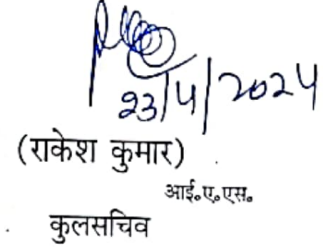 23/4/2024
(राकेश कुमार)
आई॰ए॰एस॰
कुलसचिव